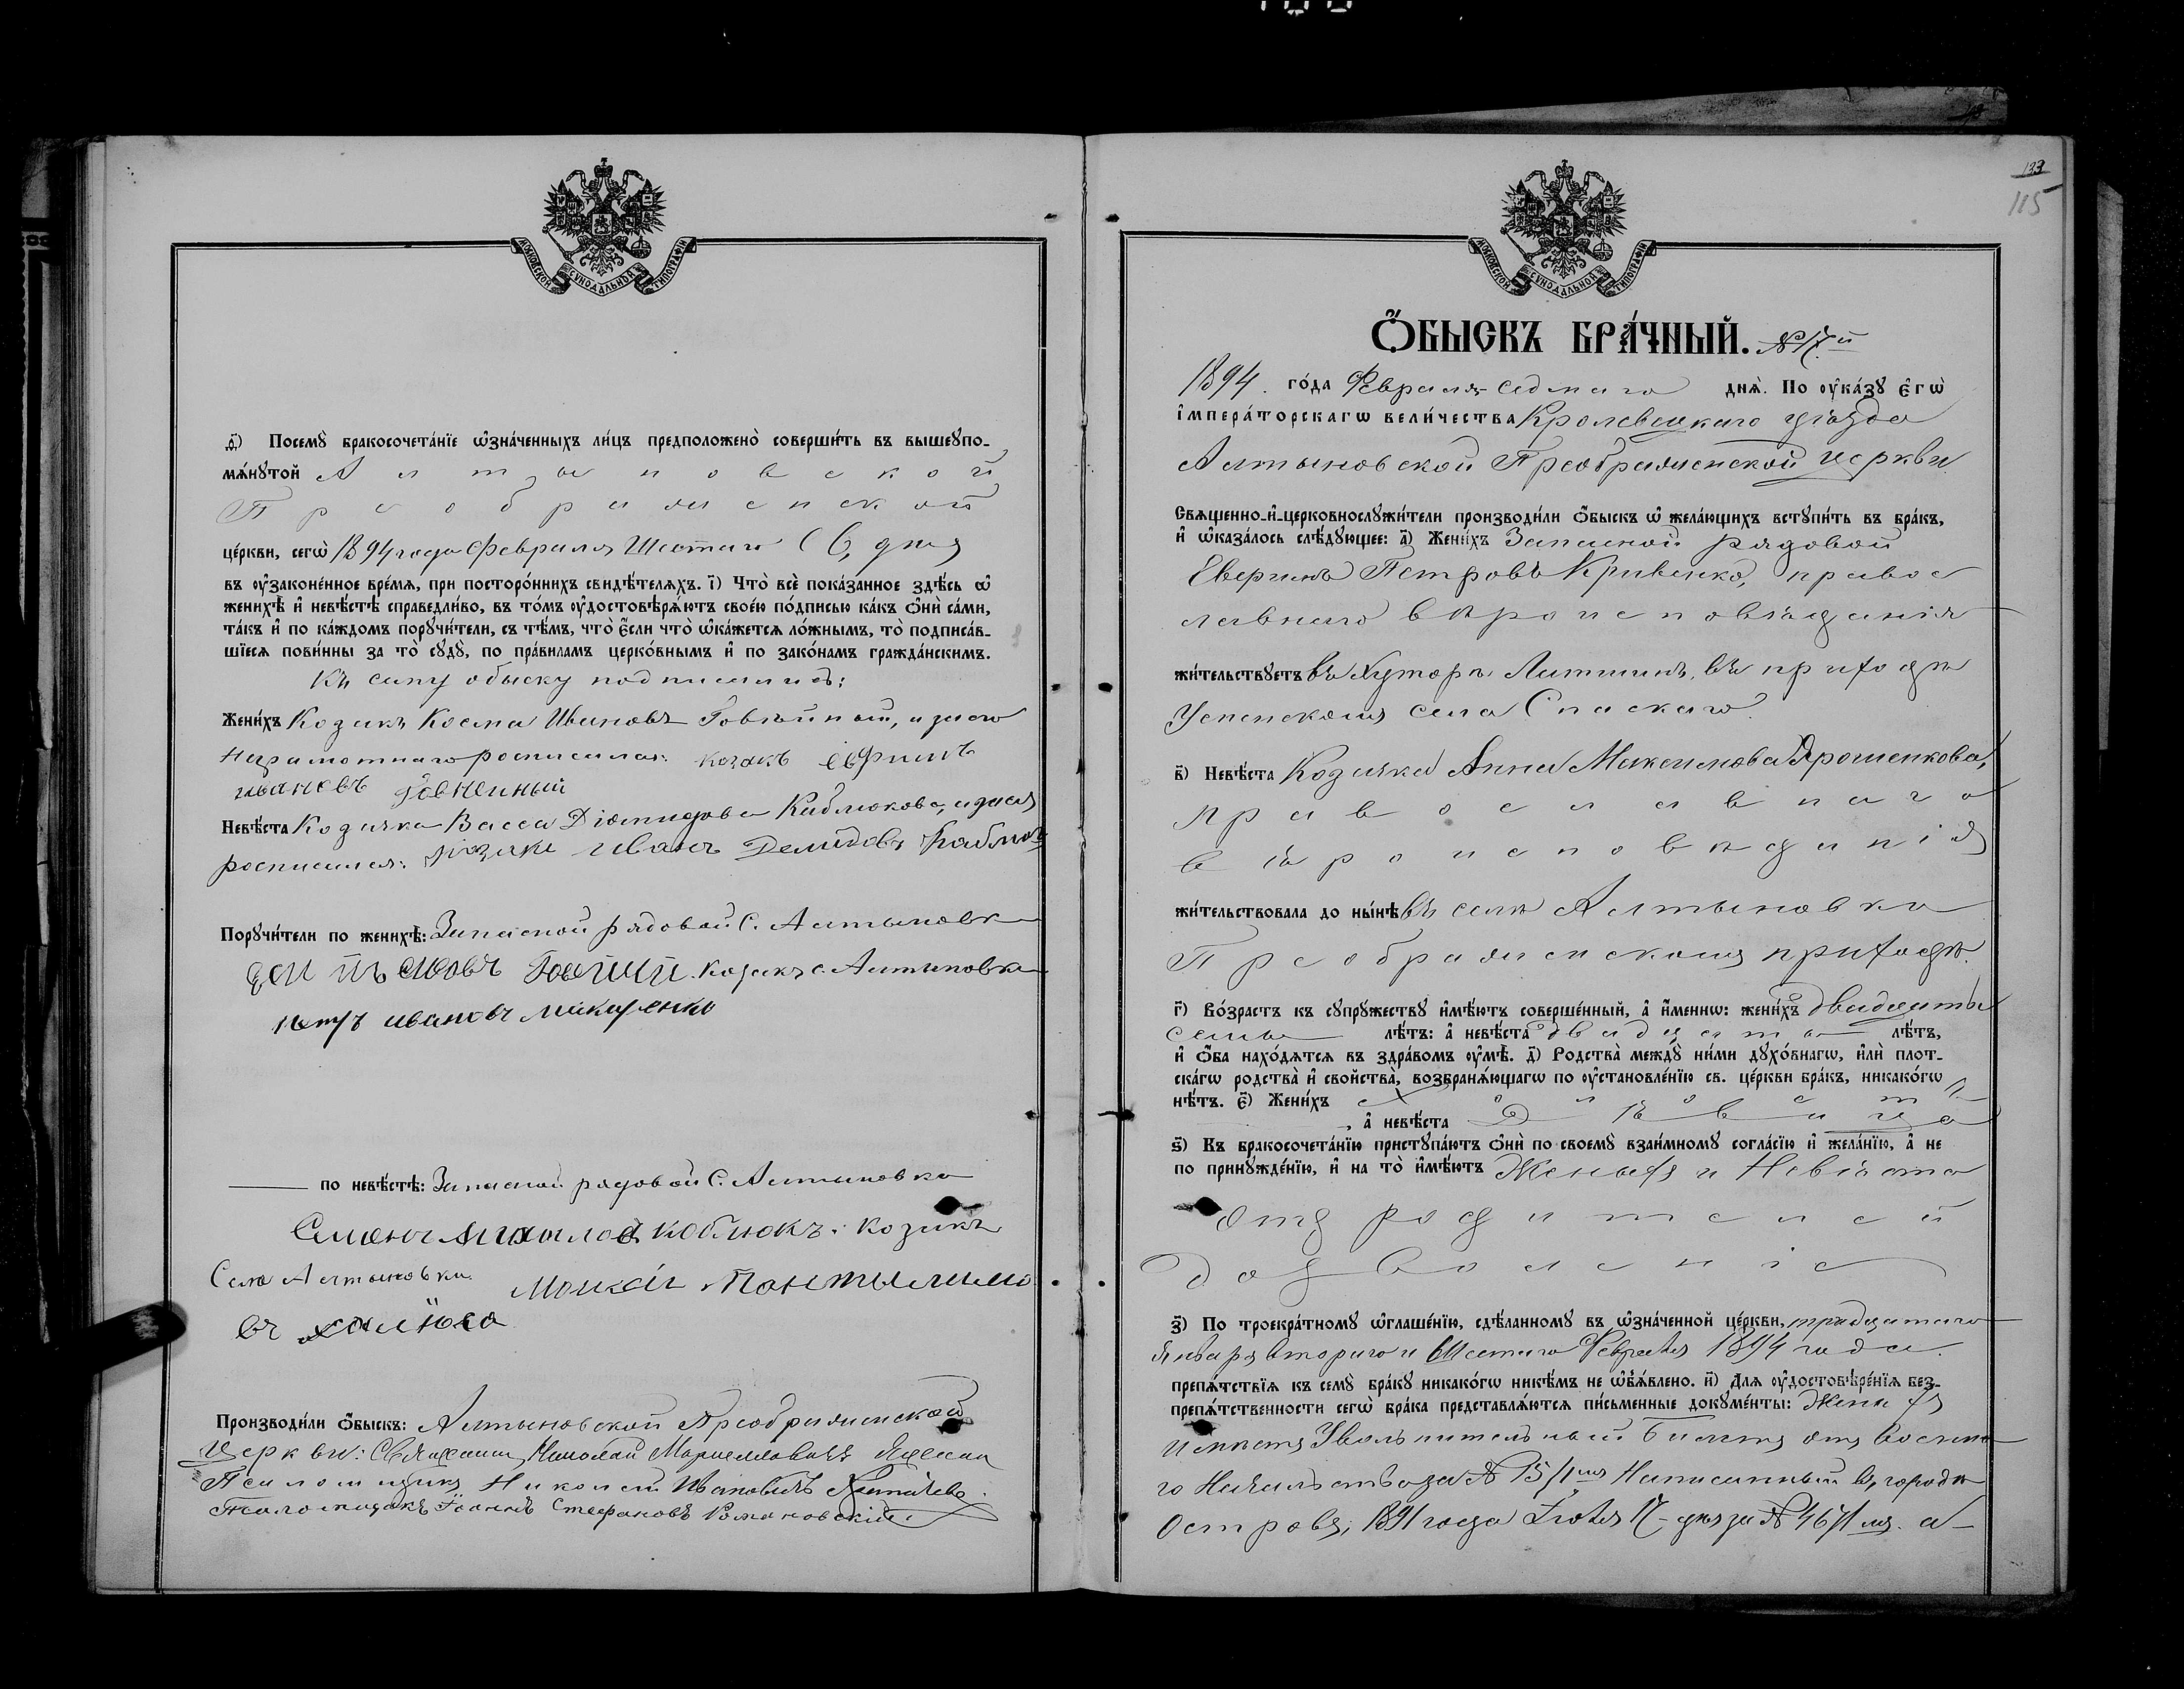 МОСКОВСКОЙ СѴНОДАЛЬНОЙ ТИПОГРАФІИ
д҃) Посемꙋ̀ бракосочета́нїе ѡ҆зна́ченныхъ ли́цъ предположено̀ соверши́ть въ вышеꙋпо-
мѧ́нꙋтой Алтыновской
Преображенской
це́ркви, сегѡ̀ 1894 года Февраля Шестаго (6, дня)
въ ᲂу҆законе́нное вре́мѧ, при посторо́ннихъ свидѣ́телѧхъ. і҃) Что̀ всѐ пока́занное здѣ́сь ѡ҆
женихѣ̀ и҆ невѣ́стѣ справедли́во, въ то́мъ ᲂу҆достовѣрѧ́ютъ свое́ю по́дписью ка́къ ѻ҆нѝ са́ми,
та́къ и҆ по ка́ждомъ порꙋчи́тели, съ тѣ́мъ, что̀ є҆́сли что̀ ѡ҆ка́жетсѧ ло́жнымъ, то̀ подписа́в-
шїесѧ пови́нны за то̀ сꙋдꙋ̀, по пра́виламъ церко́внымъ и҆ по зако́намъ гражда́нскимъ.
Къ сему обыску подписались:
Жени́хъ Козакъ Косма Ивановъ Говѣйный, и за его
неграмотнаго росписался: козакъ Ефимъ
ивановъ
Невѣ́ста Козачка Васса Діомидова Каблюкова, а за ея
росписался: козакъ Иванъ Демидовъ Каблюкъ
Порꙋчи́тели по женихѣ̀: Запасной рядовой С. Алтыновки
козакъ с. Алтыновки
петръ ивановъ
по невѣ́стѣ: Запасной рядовой С. Алтыновки
Семенъ Михайловъ Коблюкъ: козакъ
Села Алтыновки.
въ
Производи́ли ѻ҆́быскъ: Алтыновской Преображенской
Церкви: Священникъ Николай
Псаломщикъ Николай Ивановичъ
Псаломщикъ Іоаннъ Стефановъ Романовскій
123
115
МОСКОВСКОЙ СѴНОДАЛЬНОЙ ТИПОГРАФІИ
Ѻ҆́БЫСКЪ БРА́ЧНЫЙ. № 17й
1894. го́да Февраля седмаго днѧ̀. По ᲂу҆ка́зꙋ є҆гѡ̀
і҆мпера́торскагѡ вели́чества Кролевецкаго уѣзда
Алтыновской Преображенской церкви
Свѧщенно-и҆-церковнослꙋжи́тели производи́ли ѻ҆́быскъ ѡ҆ жела́ющихъ встꙋпи́ть въ бра́къ,
и҆ ѡ҆каза́лось слѣ́дꙋющее: а҃) Жени́хъ Запасной рядовой
Петровъ Кривенко, правос
лавнаго вѣроисповѣданія
жи́тельствꙋетъ въ Хуторѣ въ приходѣ
Успенскомъ села Спаскаго.
в҃) Невѣ́ста Козачка Анна Максимова Ярошенкова,
православнаго
вѣроисповѣданія
жи́тельствовала до ны́нѣ въ селѣ Алтыновка
Преображенскомъ приходѣ.
г҃) Во́зрастъ къ сꙋпрꙋ́жествꙋ и҆мѣ́ютъ соверше́нный, а҆ и҆́меннѡ: жени́хъ двадцать
семь лѣ́тъ: а҆ невѣ́ста двадцать лѣ́тъ,
и҆ ѻ҆́ба нахо́дѧтсѧ въ здра́вомъ ᲂу҆мѣ̀. д҃) Родства̀ междꙋ̀ ни́ми дꙋхо́внагѡ, и҆лѝ плот-
ска́гѡ родства̀ и҆ сво́йства̀, возбранѧ́ющагѡ по ᲂу҆становле́нїю св. це́ркви бра́къ, никако́гѡ
нѣ́тъ. є҃) Жени́хъ Холостъ
, а҆ невѣ́ста Дѣвица
ѕ҃) Къ бракосочета́нїю пристꙋпа́ютъ ѻ҆нѝ по своемꙋ̀ взаи́мномꙋ согла́сїю и҆ жела́нїю, а҆ не
по принꙋжде́нїю, и҆ на то̀ и҆мѣ́ютъ Женихъ и Невѣста
отъ родителей
дозволеніе
з҃) По троекра́тномꙋ ѡ҆глаше́нїю, сдѣ́ланномꙋ въ ѡ҆зна́ченной це́ркви, тридцатаго
Января втораго и Шестаго Февраля 1894 года.
препѧ́тствїѧ къ семꙋ̀ бра́кꙋ никако́гѡ никѣ́мъ не ѡ҆б̾ѧ́влено. и҃) Длѧ ᲂу҆достовѣре́нїѧ без-
препѧ́тственности сегѡ̀ бра́ка представлѧ́ютсѧ пи́сьменные докꙋме́нты: Жени хъ
имѣетъ Увольнительный билетъ отъ военна
го Начальства за № 15/1 Написанный въ городѣ
Островѣ, 1891 года Іюля 17 дня за № 4671 а-